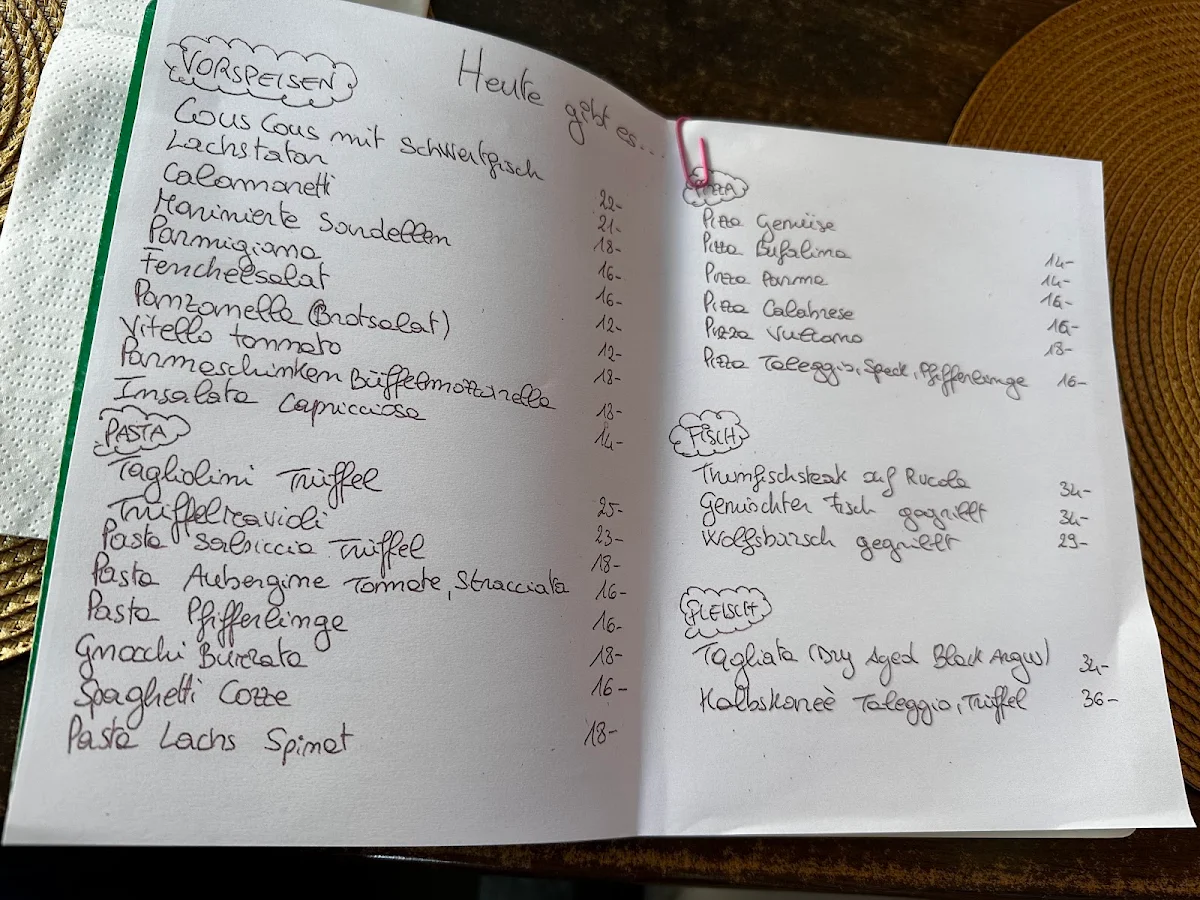 Heute gibt es...
VORSPEISEN
Cous Cous mit Schwertfisch 22-
Lachstatar 21-
Calamaretti 18-
Marinierte Sardellen 16-
Parmigiana 16-
Fenchelsalat 12-
Panzanella (Brotsalat) 12-
Vitello tonnato 18-
Parmaschinken Büffelmozzarella 18-
Insalata Capricciosa 14-
PASTA
Tagliolini Trüffel 25-
Trüffelravioli 23-
Pasta Salsiccia Trüffel 18-
Pasta Aubergine Tomate, Stracciata 16-
Pasta Pfifferlinge 16-
Gnocchi Burrata 18-
Spaghetti Cozze 16-
Pasta Lachs Spinat 18-
PIZZA
Pizza Gemüse 14-
Pizza Bufalina 14-
Pizza Parma 16-
Pizza Calabrese 16-
Pizza Vulcano 18-
Pizza Taleggio, Speck, Pfifferlinge 16-
FISCH
Thunfischsteak auf Rucola 34-
Gemischter Fisch gegrillt 34-
Wolfsbarsch gegrillt 29-
FLEISCH
Tagliata (Dry Aged Black Angus) 34-
Kalbskareè Taleggio, Trüffel 36-